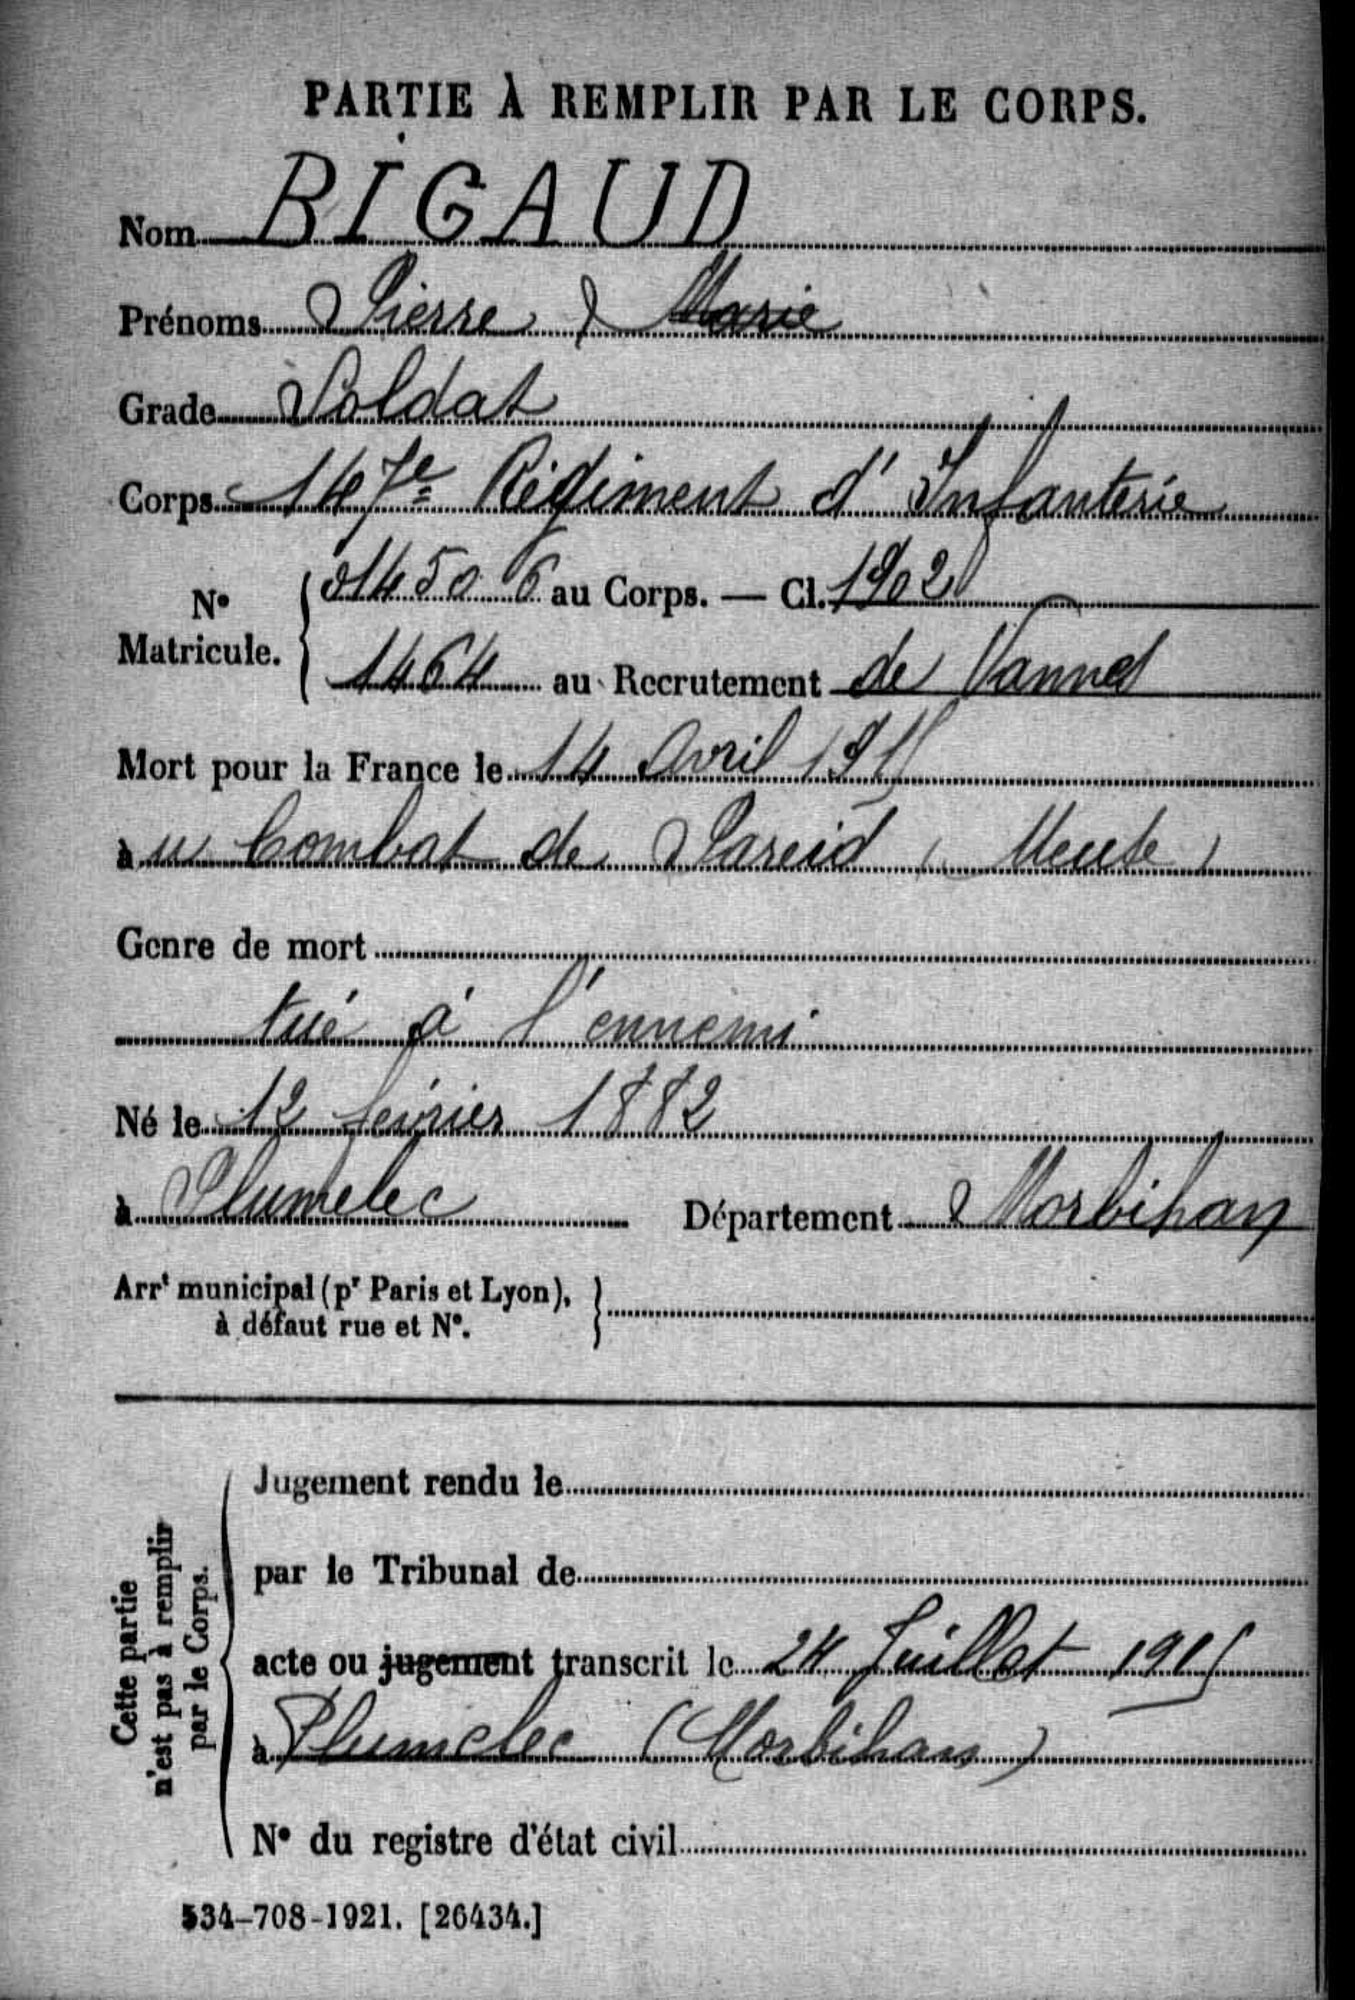 PARTIE À REMPLIR PAR LE CORPS.
Nom RIGAUD
Prénoms Pierre Marie
Grade Soldat
Corps 147e Régiment d'Infanterie
N° Matricule. 014506 au Corps. — Cl. 1902
1464 au Recrutement de Vannes
Mort pour la France le 14 Avril 1915
à u Combat de Pareid (Meuse)
Genre de mort
tué à l'ennemi
Né le 12 février 1882
à Plumelec Département Morbihan
Arrt municipal (pr Paris et Lyon),
à défaut rue et N°.
Cette partie
n'est pas à remplir
par le Corps.
Jugement rendu le
par le Tribunal de
acte ou jugement transcrit le 24 Juillet 1915
à Plumelec (Morbihan)
N° du registre d'état civil
534-708-1921. [26434.]